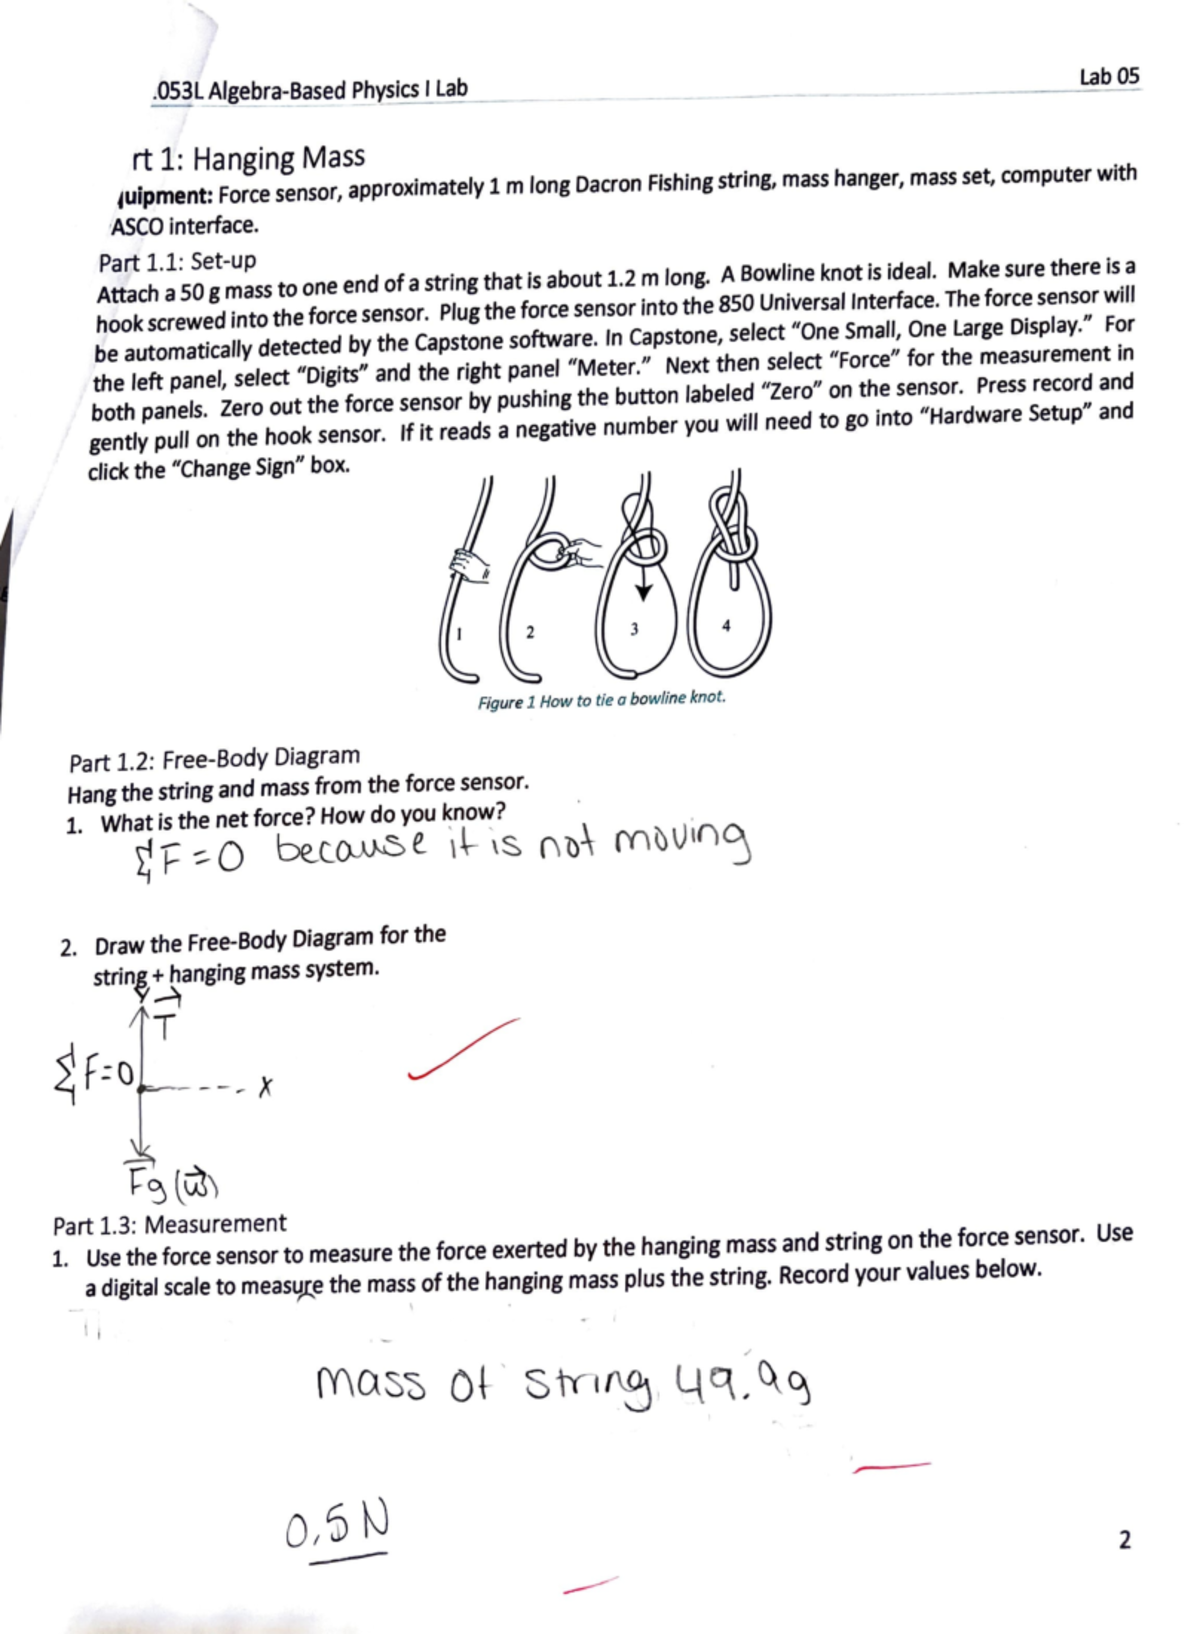 .053L Algebra-Based Physics I Lab
Lab 05
rt 1: Hanging Mass
uipment: Force sensor, approximately 1 m long Dacron Fishing string, mass hanger, mass set, computer with
ASCO interface.
Part 1.1: Set-up
Attach a 50 g mass to one end of a string that is about 1.2 m long. A Bowline knot is ideal. Make sure there is a
hook screwed into the force sensor. Plug the force sensor into the 850 Universal Interface. The force sensor will
be automatically detected by the Capstone software. In Capstone, select “One Small, One Large Display.” For
the left panel, select “Digits” and the right panel “Meter.” Next then select “Force” for the measurement in
both panels. Zero out the force sensor by pushing the button labeled “Zero” on the sensor. Press record and
gently pull on the hook sensor. If it reads a negative number you will need to go into “Hardware Setup” and
click the “Change Sign” box.
1 2 3 4
Figure 1 How to tie a bowline knot.
Part 1.2: Free-Body Diagram
Hang the string and mass from the force sensor.
1. What is the net force? How do you know?
ΣF=0 because it is not moving
2. Draw the Free-Body Diagram for the
string + hanging mass system.
y
T
ΣF=0
x
Fg (w)
Part 1.3: Measurement
1. Use the force sensor to measure the force exerted by the hanging mass and string on the force sensor. Use
a digital scale to measure the mass of the hanging mass plus the string. Record your values below.
mass of string 49.9g
0.5N
2